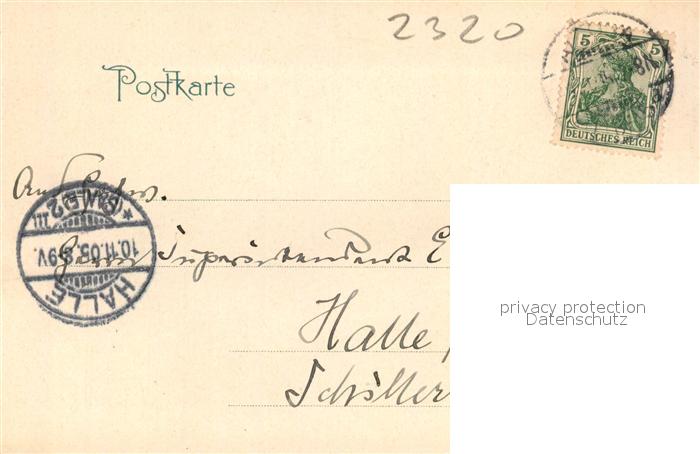 2320
5 5
DEUTSCHES REICH
Postkarte
Herrn Superintendent E
HALLE
10.11.05. 8-9V.
Halle,
Schiller
privacy protection
Datenschutz